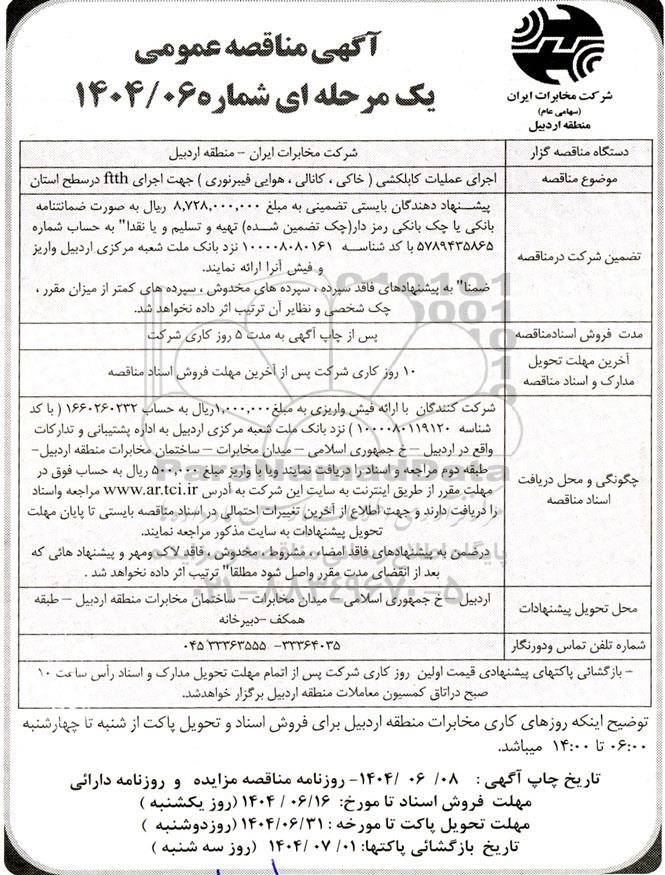 آگهی مناقصه عمومی
یک مرحله ای شماره ۱۴۰۴/۰۶
شرکت مخابرات ایران
(سهامی عام)
منطقه اردبیل
دستگاه مناقصه گزار
شرکت مخابرات ایران – منطقه اردبیل
موضوع مناقصه
اجرای عملیات کابلکشی ( خاکی ، کانالی ، هوایی فیبرنوری ) جهت اجرای ftth درسطح استان
تضمین شرکت درمناقصه
پیشنهاد دهندگان بایستی تضمینی به مبلغ ۸,۷۲۸,۰۰۰,۰۰۰ ریال به صورت ضمانتنامه
بانکی یا چک بانکی رمز دار(چک تضمین شده) تهیه و تسلیم و یا نقدا" به حساب شماره
۵۷۸۹۴۳۵۸۶۵ با کد شناسه ۱۰۰۰۰۸۰۸۰۱۶۱ نزد بانک ملت شعبه مرکزی اردبیل واریز
و فیش آنرا ارائه نمایند.
ضمنا" به پیشنهادهای فاقد سپرده ، سپرده های مخدوش ، سپرده های کمتر از میزان مقرر ،
چک شخصی و نظایر آن ترتیب اثر داده نخواهد شد.
مدت فروش اسنادمناقصه
پس از چاپ آگهی به مدت ۵ روز کاری شرکت
آخرین مهلت تحویل
مدارک و اسناد مناقصه
۱۰ روز کاری شرکت پس از آخرین مهلت فروش اسناد مناقصه
چگونگی و محل دریافت
اسناد مناقصه
شرکت کنندگان با ارائه فیش واریزی به مبلغ۱,۰۰۰,۰۰۰ریال به حساب ۱۶۶۰۲۶۰۲۳۲ ( با کد
شناسه ۱۰۰۰۰۸۰۱۱۹۱۲۰ ) نزد بانک ملت شعبه مرکزی اردبیل به اداره پشتیبانی و تدارکات
واقع در اردبیل – خ جمهوری اسلامی – میدان مخابرات – ساختمان مخابرات منطقه اردبیل–
طبقه دوم مراجعه و اسناد را دریافت نمایند ویا با واریز مبلغ ۵۰۰.۰۰۰ ریال به حساب فوق در
مهلت مقرر از طریق اینترنت به سایت این شرکت به آدرس www.ar.tci.ir مراجعه واسناد
را دریافت دارند و جهت اطلاع از آخرین تغییرات احتمالی در اسناد مناقصه بایستی تا پایان مهلت
تحویل پیشنهادات به سایت مذکور مراجعه نمایند.
درضمن به پیشنهادهای فاقد امضاء ، مشروط ، مخدوش ، فاقد لاک ومهر و پیشنهاد هائی که
بعد از انقضای مدت مقرر واصل شود مطلقا" ترتیب اثر داده نخواهد شد .
محل تحویل پیشنهادات
اردبیل – خ جمهوری اسلامی– میدان مخابرات – ساختمان مخابرات منطقه اردبیل – طبقه
همکف –دبیرخانه
شماره تلفن تماس ودورنگار
۰۴۵ ۳۳۳۶۳۵۵۵ -۳۳۳۶۴۰۳۵
– بازگشائی پاکتهای پیشنهادی قیمت اولین روز کاری شرکت پس از اتمام مهلت تحویل مدارک و اسناد رأس ساعت ۱۰
صبح دراتاق کمسیون معاملات منطقه اردبیل برگزار خواهدشد.
توضیح اینکه روزهای کاری مخابرات منطقه اردبیل برای فروش اسناد و تحویل پاکت از شنبه تا چهارشنبه
۰۶:۰۰ تا ۱۴:۰۰ میباشد.
تاریخ چاپ آگهی : ۰۸/ ۰۶ /۱۴۰۴- روزنامه مناقصه مزایده و روزنامه دارائی
مهلت فروش اسناد تا مورخ: ۱۴۰۴/۰۶/۱۶ (روز یکشنبه )
مهلت تحویل پاکت تا مورخه : ۱۴۰۴/۰۶/۳۱ (روزدوشنبه )
تاریخ بازگشائی پاکتها: ۰۱/ ۰۷ /۱۴۰۴ (روز سه شنبه )